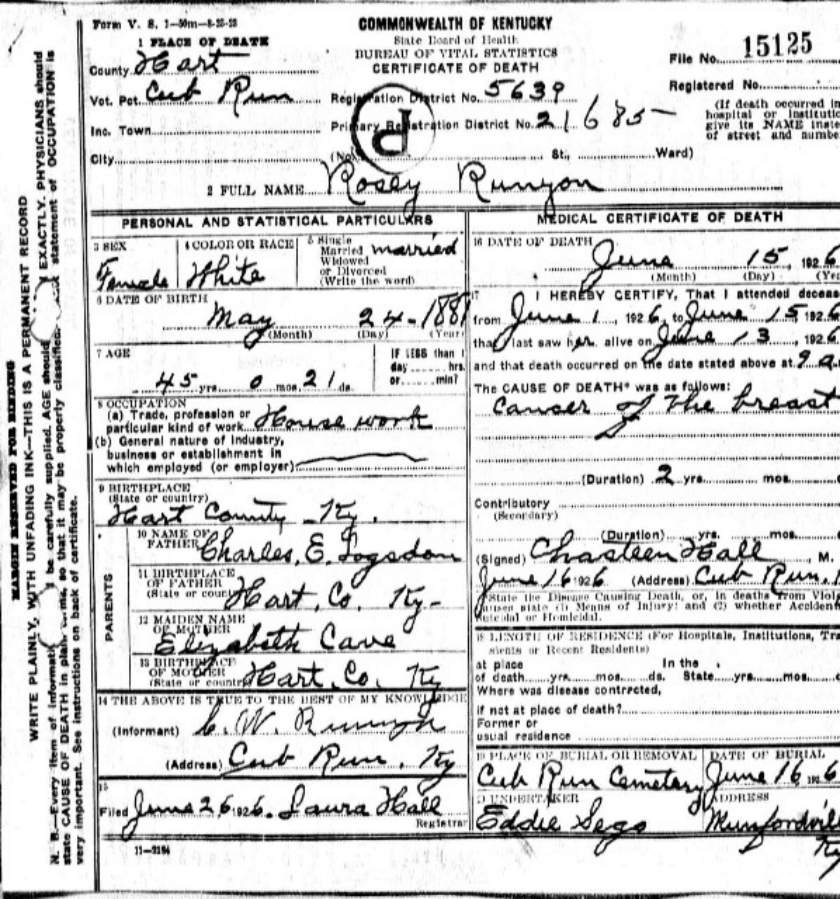 Form V. S. 1-50m-8-25-25
COMMONWEALTH OF KENTUCKY
State Board of Health
BUREAU OF VITAL STATISTICS
CERTIFICATE OF DEATH
File No. 15125
1 PLACE OF DEATH
County Hart
Registered No.
Vot. Pct. Cub Run
Registration District No. 5639
(If death occurred in
hospital or Institutio
give its NAME inste
of street and numbe
Inc. Town
Primary Registration District No. 21685-
P
City
(No. St., Ward)
2 FULL NAME Rosey Runyon
PERSONAL AND STATISTICAL PARTICULARS
3 SEX Female
4 COLOR OR RACE White
5 Single Married Widowed or Divorced (Write the word) married
6 DATE OF BIRTH
May 24-1881
(Month) (Day) (Year)
7 AGE
45 yrs. 0 mos. 21 ds.
IF LESS than 1
day hrs.
or min?
8 OCCUPATION
(a) Trade, profession or
particular kind of work House work
(b) General nature of industry,
business or establishment in
which employed (or employer)
9 BIRTHPLACE
(State or country)
Hart County Ky.
PARENTS
10 NAME OF
FATHER Charles. E. Logsdon
11 BIRTHPLACE
OF FATHER
(State or country) Hart. Co. Ky-
12 MAIDEN NAME
OF MOTHER
Elizabeth Cave
13 BIRTHPLACE
OF MOTHER
(State or country) Hart. Co. Ky
14 THE ABOVE IS TRUE TO THE BEST OF MY KNOWLEDGE
(Informant) C. W. Runyon
(Address) Cub Run. Ky
15
Filed June 26 1926. Laura Hall
Registrar
11-3184
MEDICAL CERTIFICATE OF DEATH
16 DATE OF DEATH
June 15, 1926
(Month) (Day) (Yea
17 I HEREBY CERTIFY, That I attended deceas
from June 1, 1926, to June 15, 1926
that I last saw her alive on June 13, 1926
and that death occurred on the date stated above at 9 a
The CAUSE OF DEATH* was as follows:
Cancer of the breast
(Duration) 2 yrs. mos.
Contributory
(Secondary)
(Duration) yrs. mos.
(Signed) Chasteen Hall, M.
June 16 1926 (Address) Cub Run,
*State the Disease Causing Death, or, in deaths from Viol
Causes state (1) Means of Injury; and (2) whether Accident
Suicidal or Homicidal.
18 LENGTH OF RESIDENCE (For Hospitals, Institutions, Tra
sients or Recent Residents)
at place In the
of death yrs. mos. ds. State yrs. mos.
Where was disease contracted,
if not at place of death?
Former or
usual residence
19 PLACE OF BURIAL OR REMOVAL
Cub Run Cemetery
DATE OF BURIAL
June 16 1926
20 UNDERTAKER
Eddie Sego
ADDRESS
Munfordvill
Ky
MARGIN RESERVED FOR BINDING
WRITE PLAINLY, WITH UNFADING INK—THIS IS A PERMANENT RECORD
N. B.—Every item of information be carefully supplied. AGE should EXACTLY. PHYSICIANS should
state CAUSE OF DEATH in plain so that it may be properly classified. statement of OCCUPATION is
very important. See instructions on back of certificate.